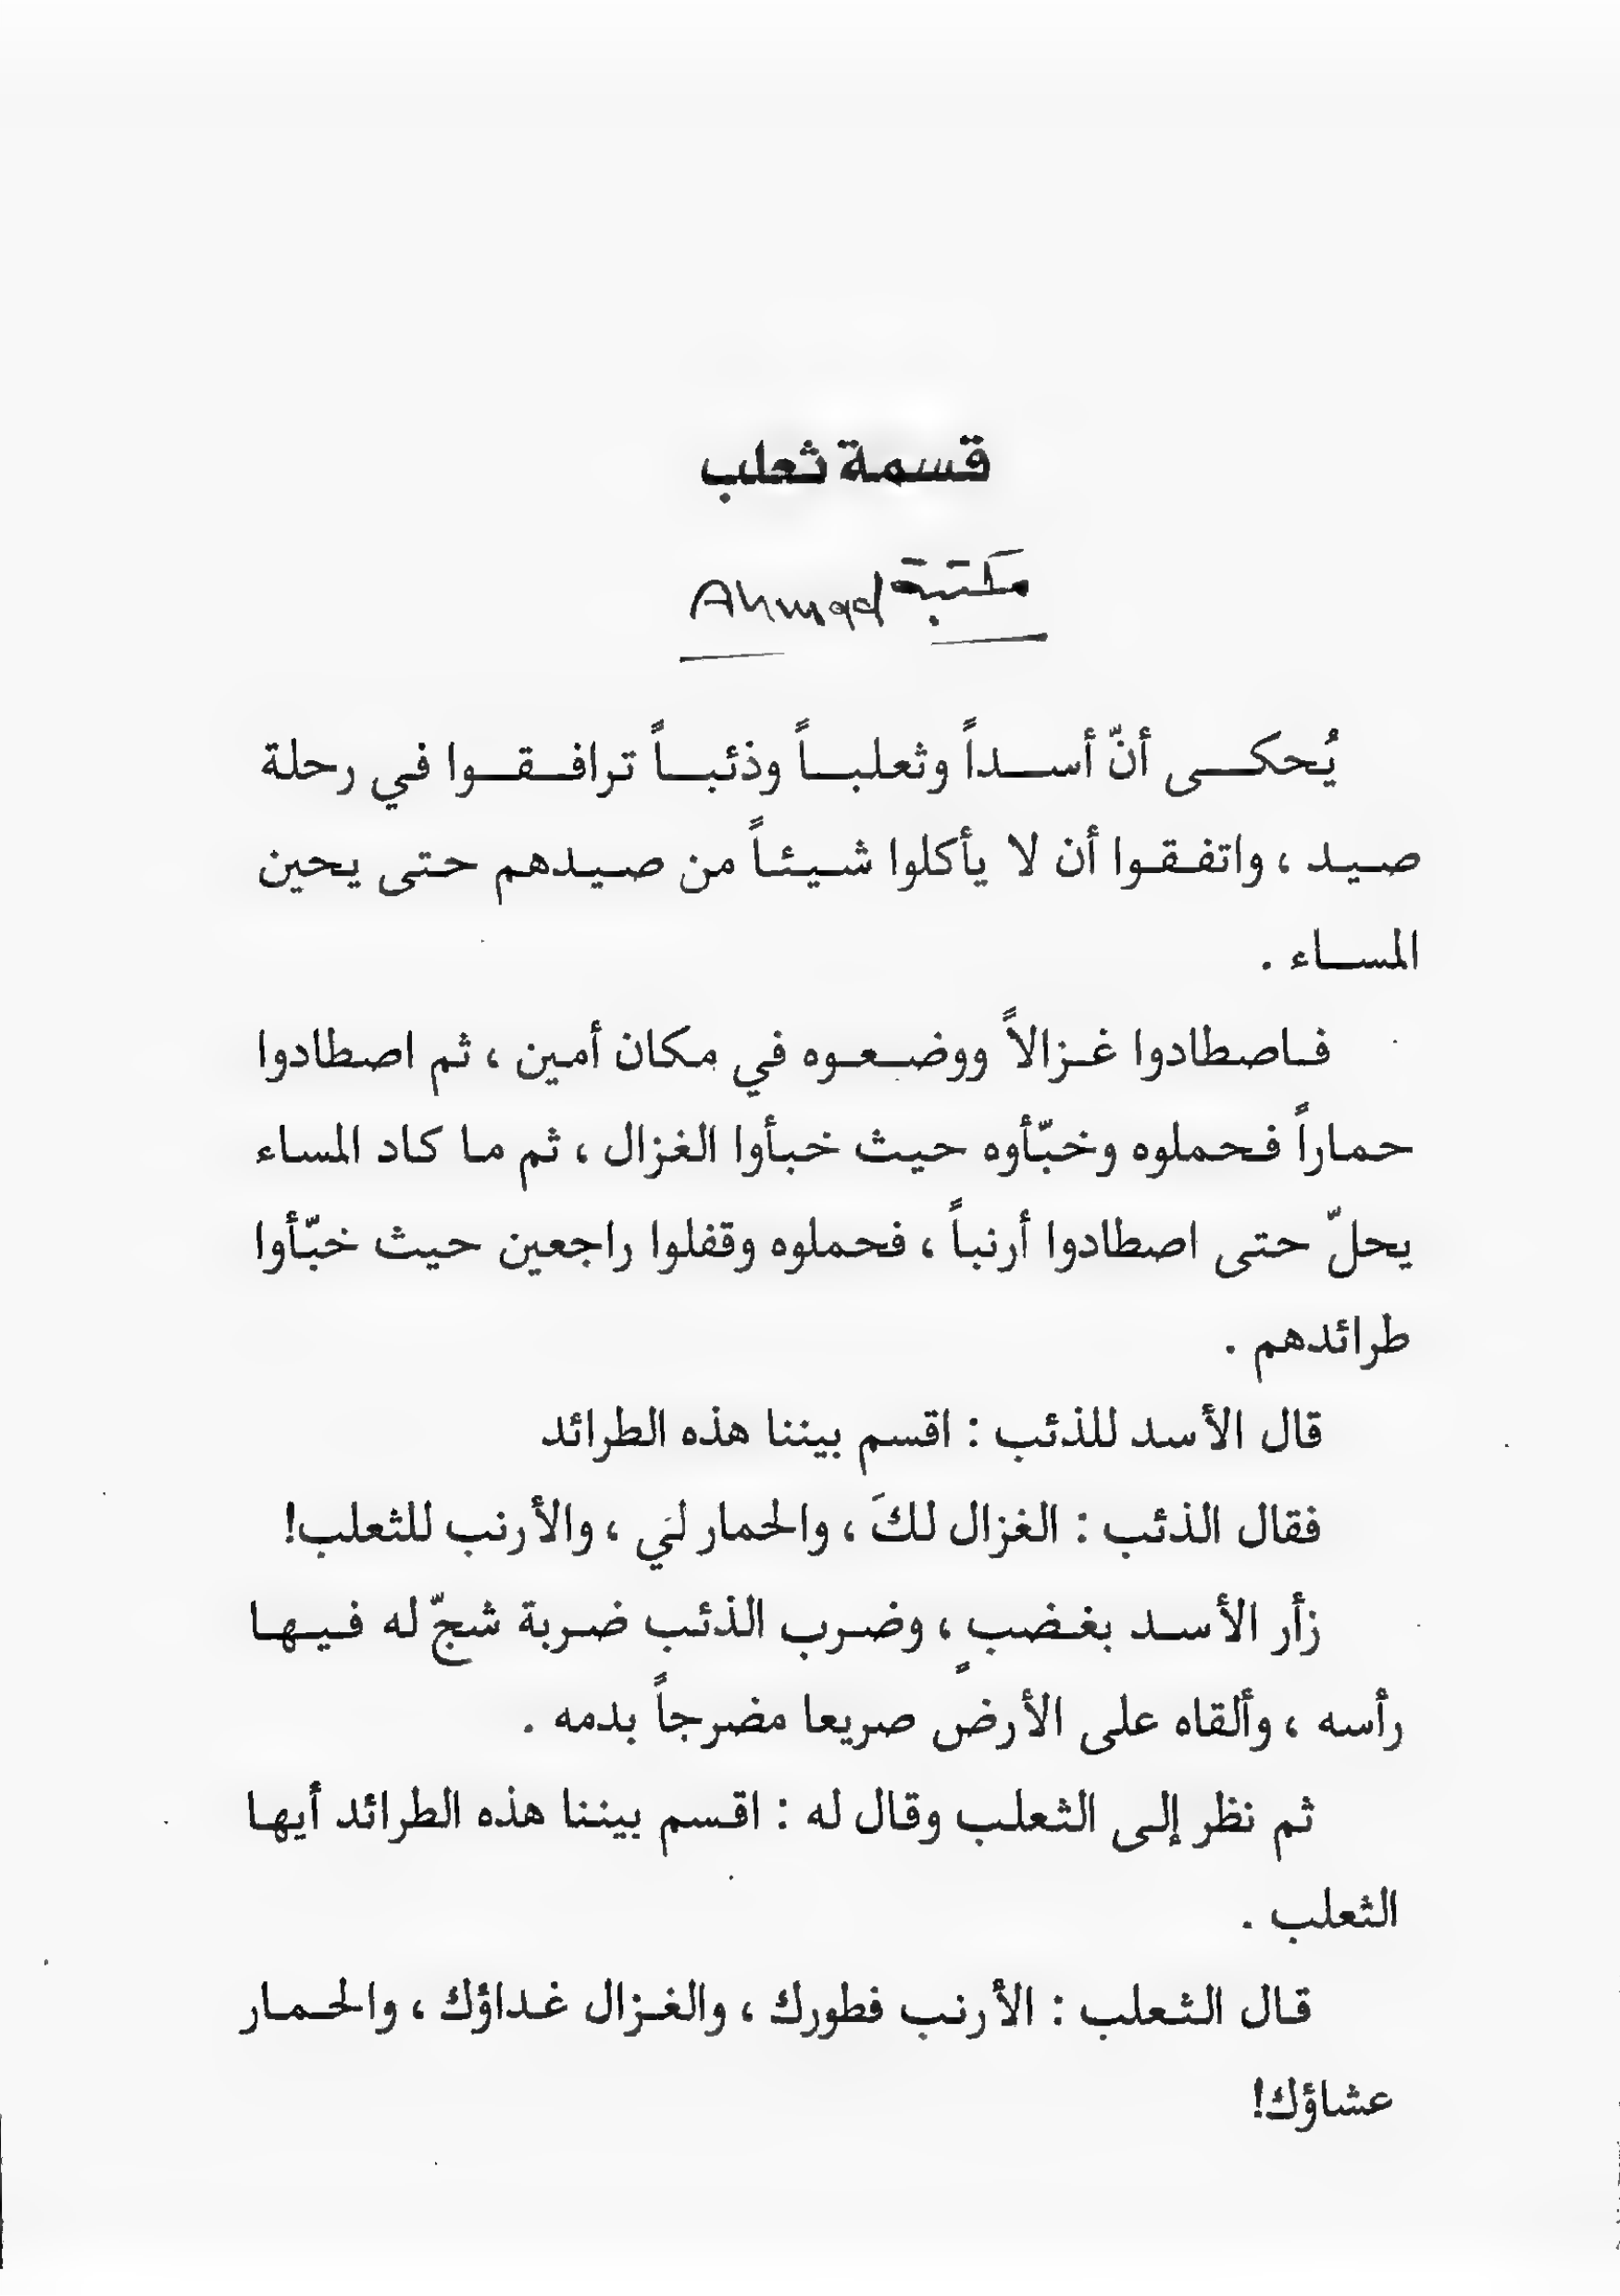 قسمة ثعلب
مكتبة Ahmad
يُحكى أنّ أسداً وثعلباً وذئباً ترافقوا في رحلة
صيد ، واتفقوا أن لا يأكلوا شيئاً من صيدهم حتى يحين
المساء .
فاصطادوا غزالاً ووضعوه في مكان أمين ، ثم اصطادوا
حماراً فحملوه وخبّأوه حيث خبأوا الغزال ، ثم ما كاد المساء
يحلّ حتى اصطادوا أرنباً ، فحملوه وقفلوا راجعين حيث خبّأوا
طرائدهم .
قال الأسد للذئب : اقسم بيننا هذه الطرائد
فقال الذئب : الغزال لكَ ، والحمار لَي ، والأرنب للثعلب!
زأر الأسد بغضبٍ ، وضرب الذئب ضربة شجّ له فيها
رأسه ، وألقاه على الأرض صريعا مضرجاً بدمه .
ثم نظر إلى الثعلب وقال له : اقسم بيننا هذه الطرائد أيها
الثعلب .
قال الثعلب : الأرنب فطورك ، والغزال غداؤك ، والحمار
عشاؤك!